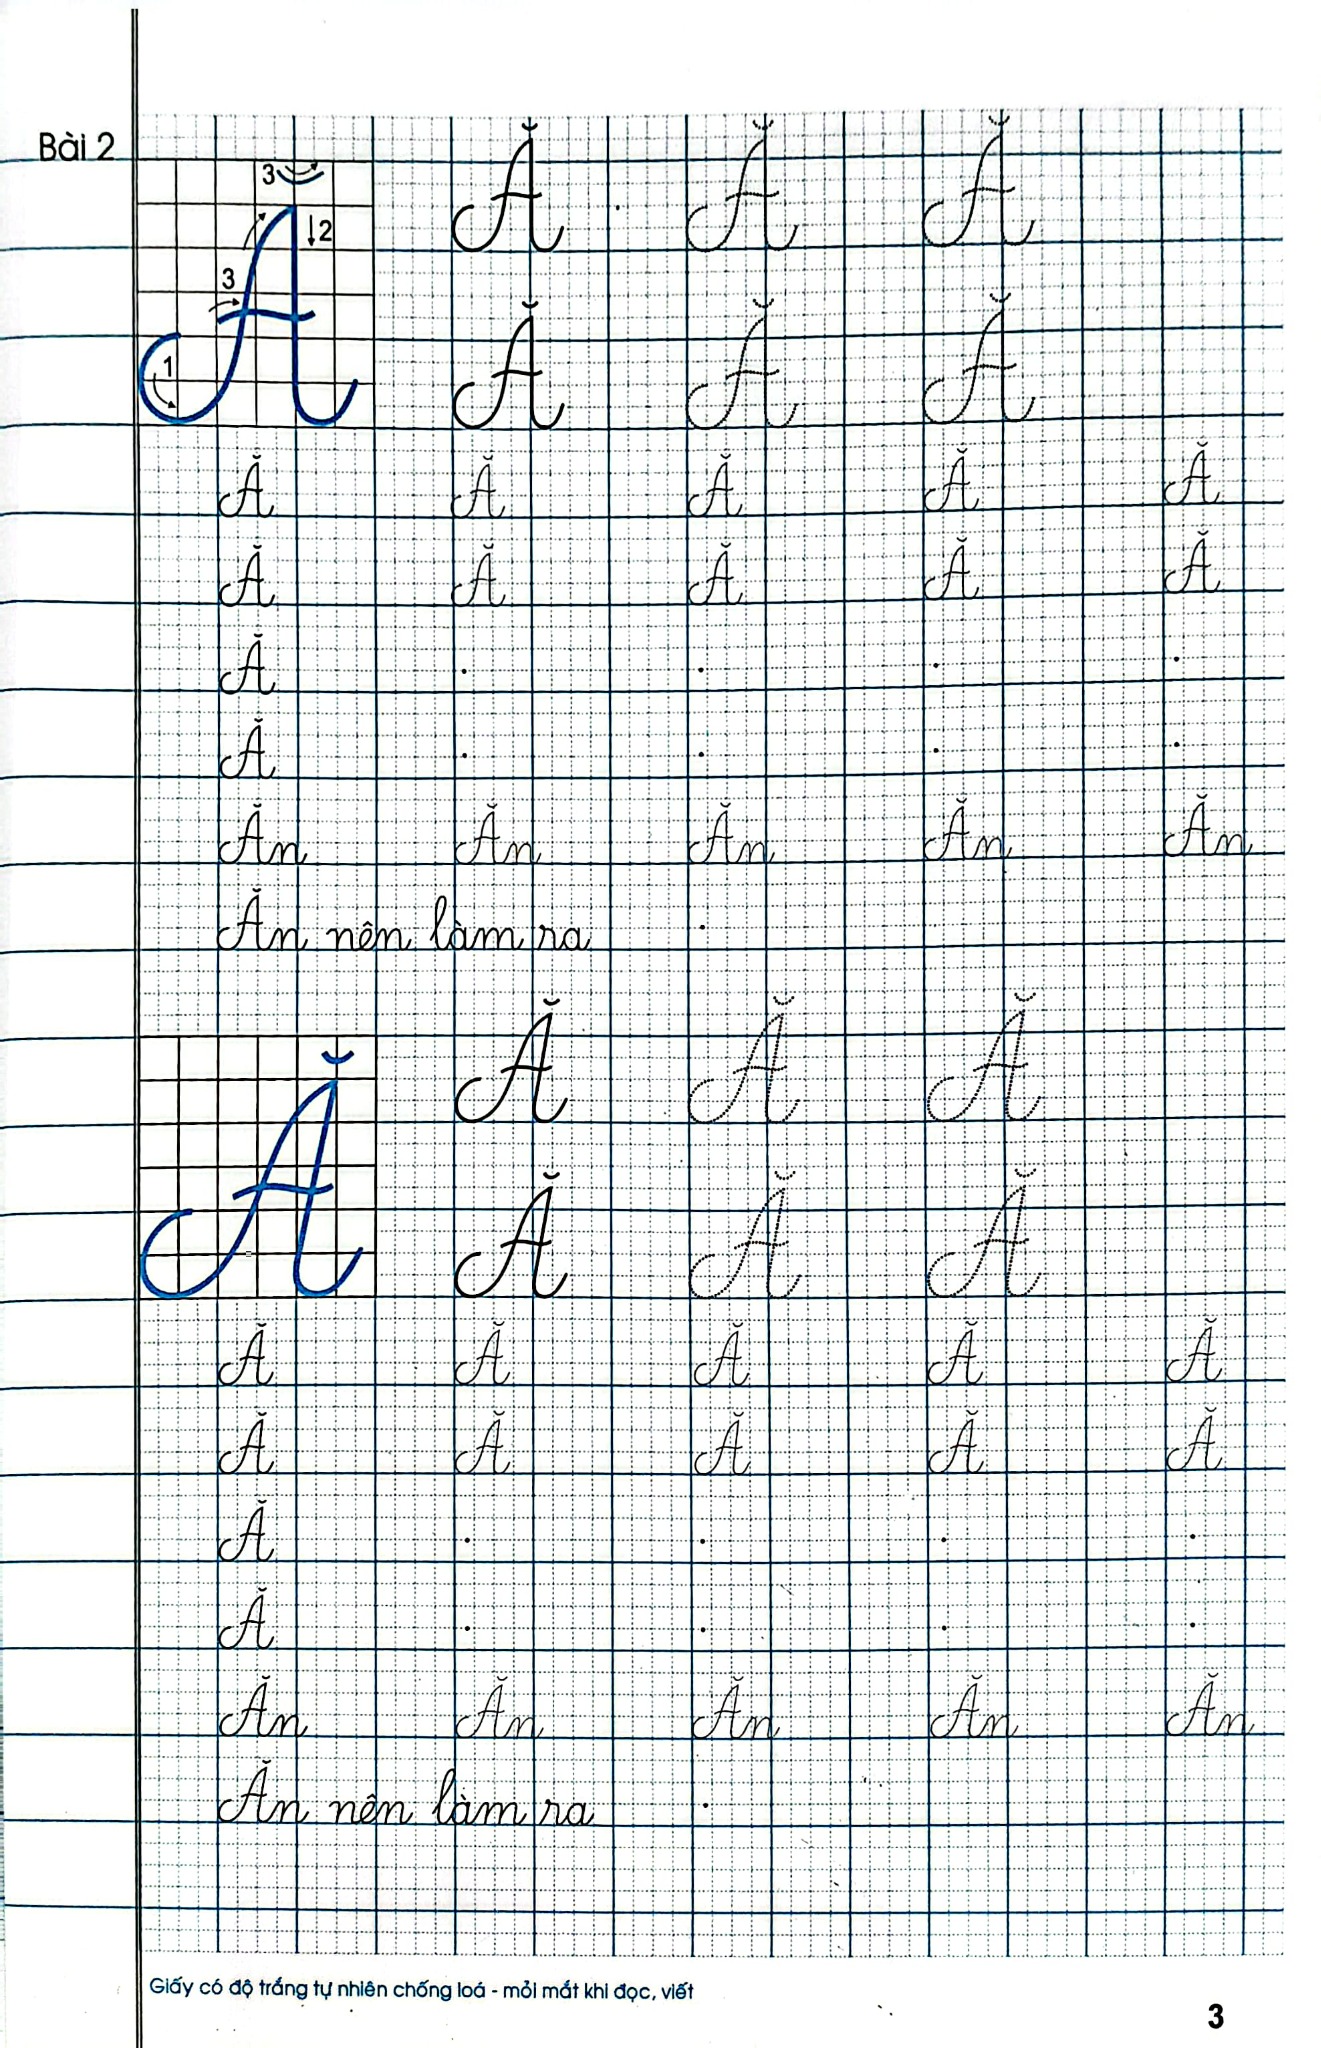 Bài 2
3
2
3
1
Ă Ă Ă
Ă Ă Ă
Ă Ă Ă Ă Ă
Ă Ă Ă Ă Ă
Ă
Ă
Ăn Ăn Ăn Ăn Ăn
Ăn nên làm ra
Ă Ă Ă Ă
Ă Ă Ă
Ă Ă Ă Ă Ă
Ă Ă Ă Ă Ă
Ă
Ă
Ăn Ăn Ăn Ăn Ăn
Ăn nên làm ra
Giấy có độ trắng tự nhiên chống loá - mỏi mắt khi đọc, viết
3